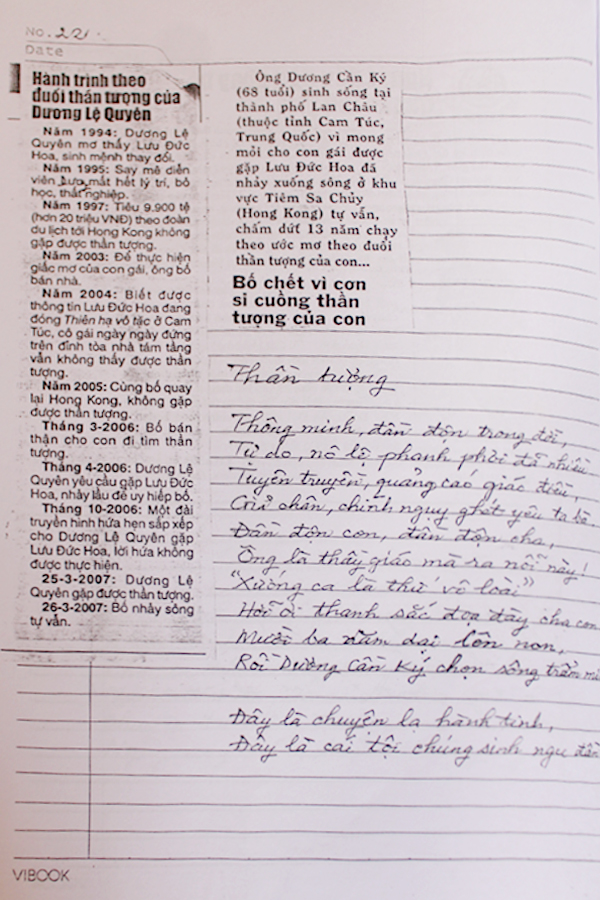 No. 221.
Date
Hành trình theo
đuổi thần tượng của
Dương Lệ Quyên
Năm 1994: Dương Lệ
Quyên mơ thấy Lưu Đức
Hoa, sinh mệnh thay đổi.
Năm 1995: Say mê diễn
viên Lưu, mất hết lý trí, bỏ
học, thất nghiệp.
Năm 1997: Tiêu 9.900 tệ
(hơn 20 triệu VNĐ) theo đoàn
du lịch tới Hong Kong không
gặp được thần tượng.
Năm 2003: Để thực hiện
giấc mơ của con gái, ông bố
bán nhà.
Năm 2004: Biết được
thông tin Lưu Đức Hoa đang
đóng Thiên hạ vô tặc ở Cam
Túc, cô gái ngày ngày đứng
trên đỉnh tòa nhà tám tầng
vẫn không thấy được thần
tượng.
Năm 2005: Cùng bố quay
lại Hong Kong, không gặp
được thần tượng.
Tháng 3-2006: Bố bán
thận cho con đi tìm thần
tượng.
Tháng 4-2006: Dương Lệ
Quyên yêu cầu gặp Lưu Đức
Hoa, nhảy lầu để uy hiếp bố.
Tháng 10-2006: Một đài
truyền hình hứa hẹn sắp xếp
cho Dương Lệ Quyên gặp
Lưu Đức Hoa, lời hứa không
được thực hiện.
25-3-2007: Dương Lệ
Quyên gặp được thần tượng.
26-3-2007: Bố nhảy sông
tự vẫn.
Ông Dương Cần Ký
(68 tuổi) sinh sống tại
thành phố Lan Châu
(thuộc tỉnh Cam Túc,
Trung Quốc) vì mong
mỏi cho con gái được
gặp Lưu Đức Hoa đã
nhảy xuống sông ở khu
vực Tiêm Sa Chủy
(Hong Kong) tự vẫn,
chấm dứt 13 năm chạy
theo ước mơ theo đuổi
thần tượng của con...
Bố chết vì con
si cuồng thần
tượng của con
Thần tượng
Thông minh, đần độn trong đời,
Tự do, nô lệ phanh phôi đã nhiều
Tuyên truyền, quảng cáo giác điều,
chân, chính nguy ghét yêu ta bà.
Đần độn con, đần độn cha,
Ông là thầy giáo mà ra nỗi này!
"Xướng ca là thứ vô loài"
Hỡi ôi thanh sắc đọa đày cha con
Mười ba năm dại lôn non,
Rồi Dương Cần Ký chọn sông trầm
Đây là chuyện lạ hành tinh,
Đây là cái tội chúng sinh ngu đần
VIBOOK